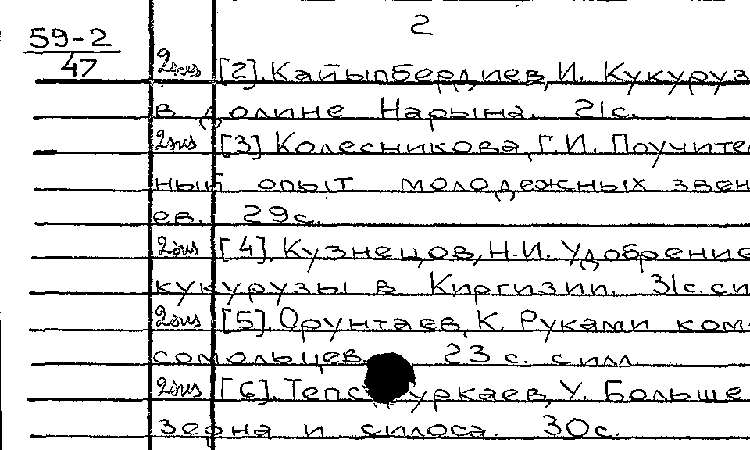 2
59-2
47
2 экз [2]. Кайыпбердиев, И. Кукуруз
в долине Нарына. 21с.
2 экз [3] Колесникова, Г.И. Поучите
ный опыт молодежных звен
ев. 29с.
2 экз [4]. Кузнецов, Н.И. Удобрение
кукурузы в Киргизии. 31с. си
2 экз [5]. Орунтаев, К. Руками ком
сомольцев 23 с. с илл
2 экз [6]. У. Больше
зерна и силоса. 30с.